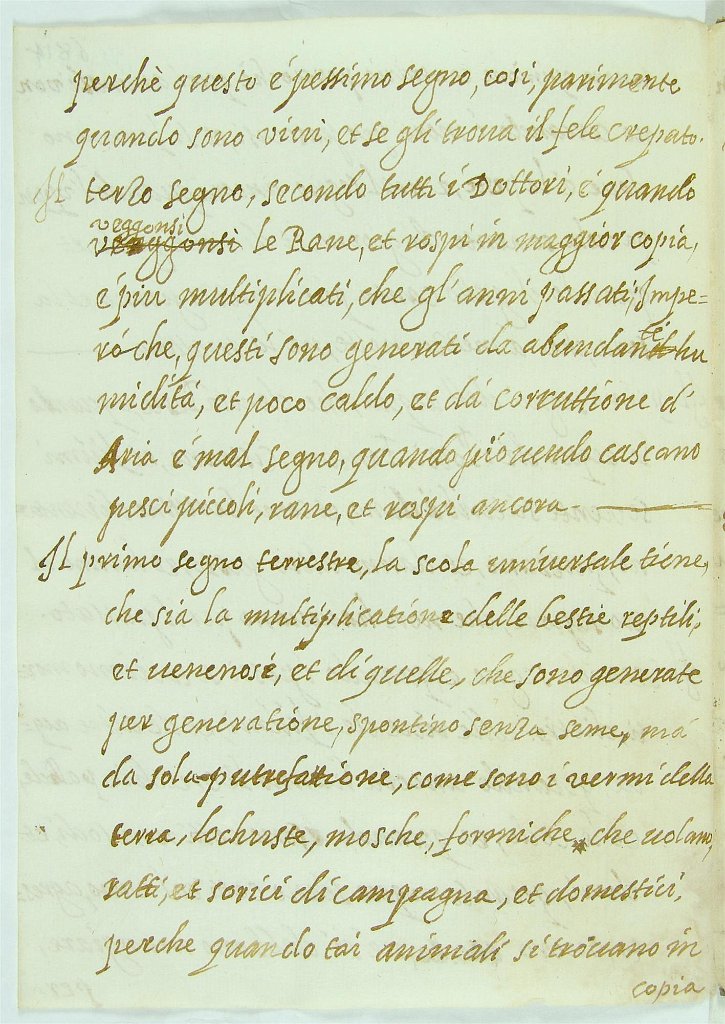 perchè questo é pessimo segno, cosi, parimente
quando sono viui, et se gli troua il fele crepato.
Il terzo segno, secondo tutti i Dottori, é quando
veggonsi
veggonsi le Rane, et rospi in maggior copia,
é piu multiplicati, che gl'anni passati; Impe=
ró che, questi sono generati da abundanti hu
miditá, et poco caldo, et dá corruttione d'
Aria é mal segno, quando piouendo cascano
pesci piccoli, rane, et rospi ancora
Il primo segno terrestre, la scola uniuersale tiene,
che sia la multiplicatione delle bestie reptili,
et uenenose, et di quelle, che sono generate
per generatione, spontino senza seme, má
da sola putrefattione, come sono i vermi della
terra, lochuste, mosche, formiche, che uolano,
ratti, et sorici di campagna, et domestici,
perche quando tai animali si trouano in
copia